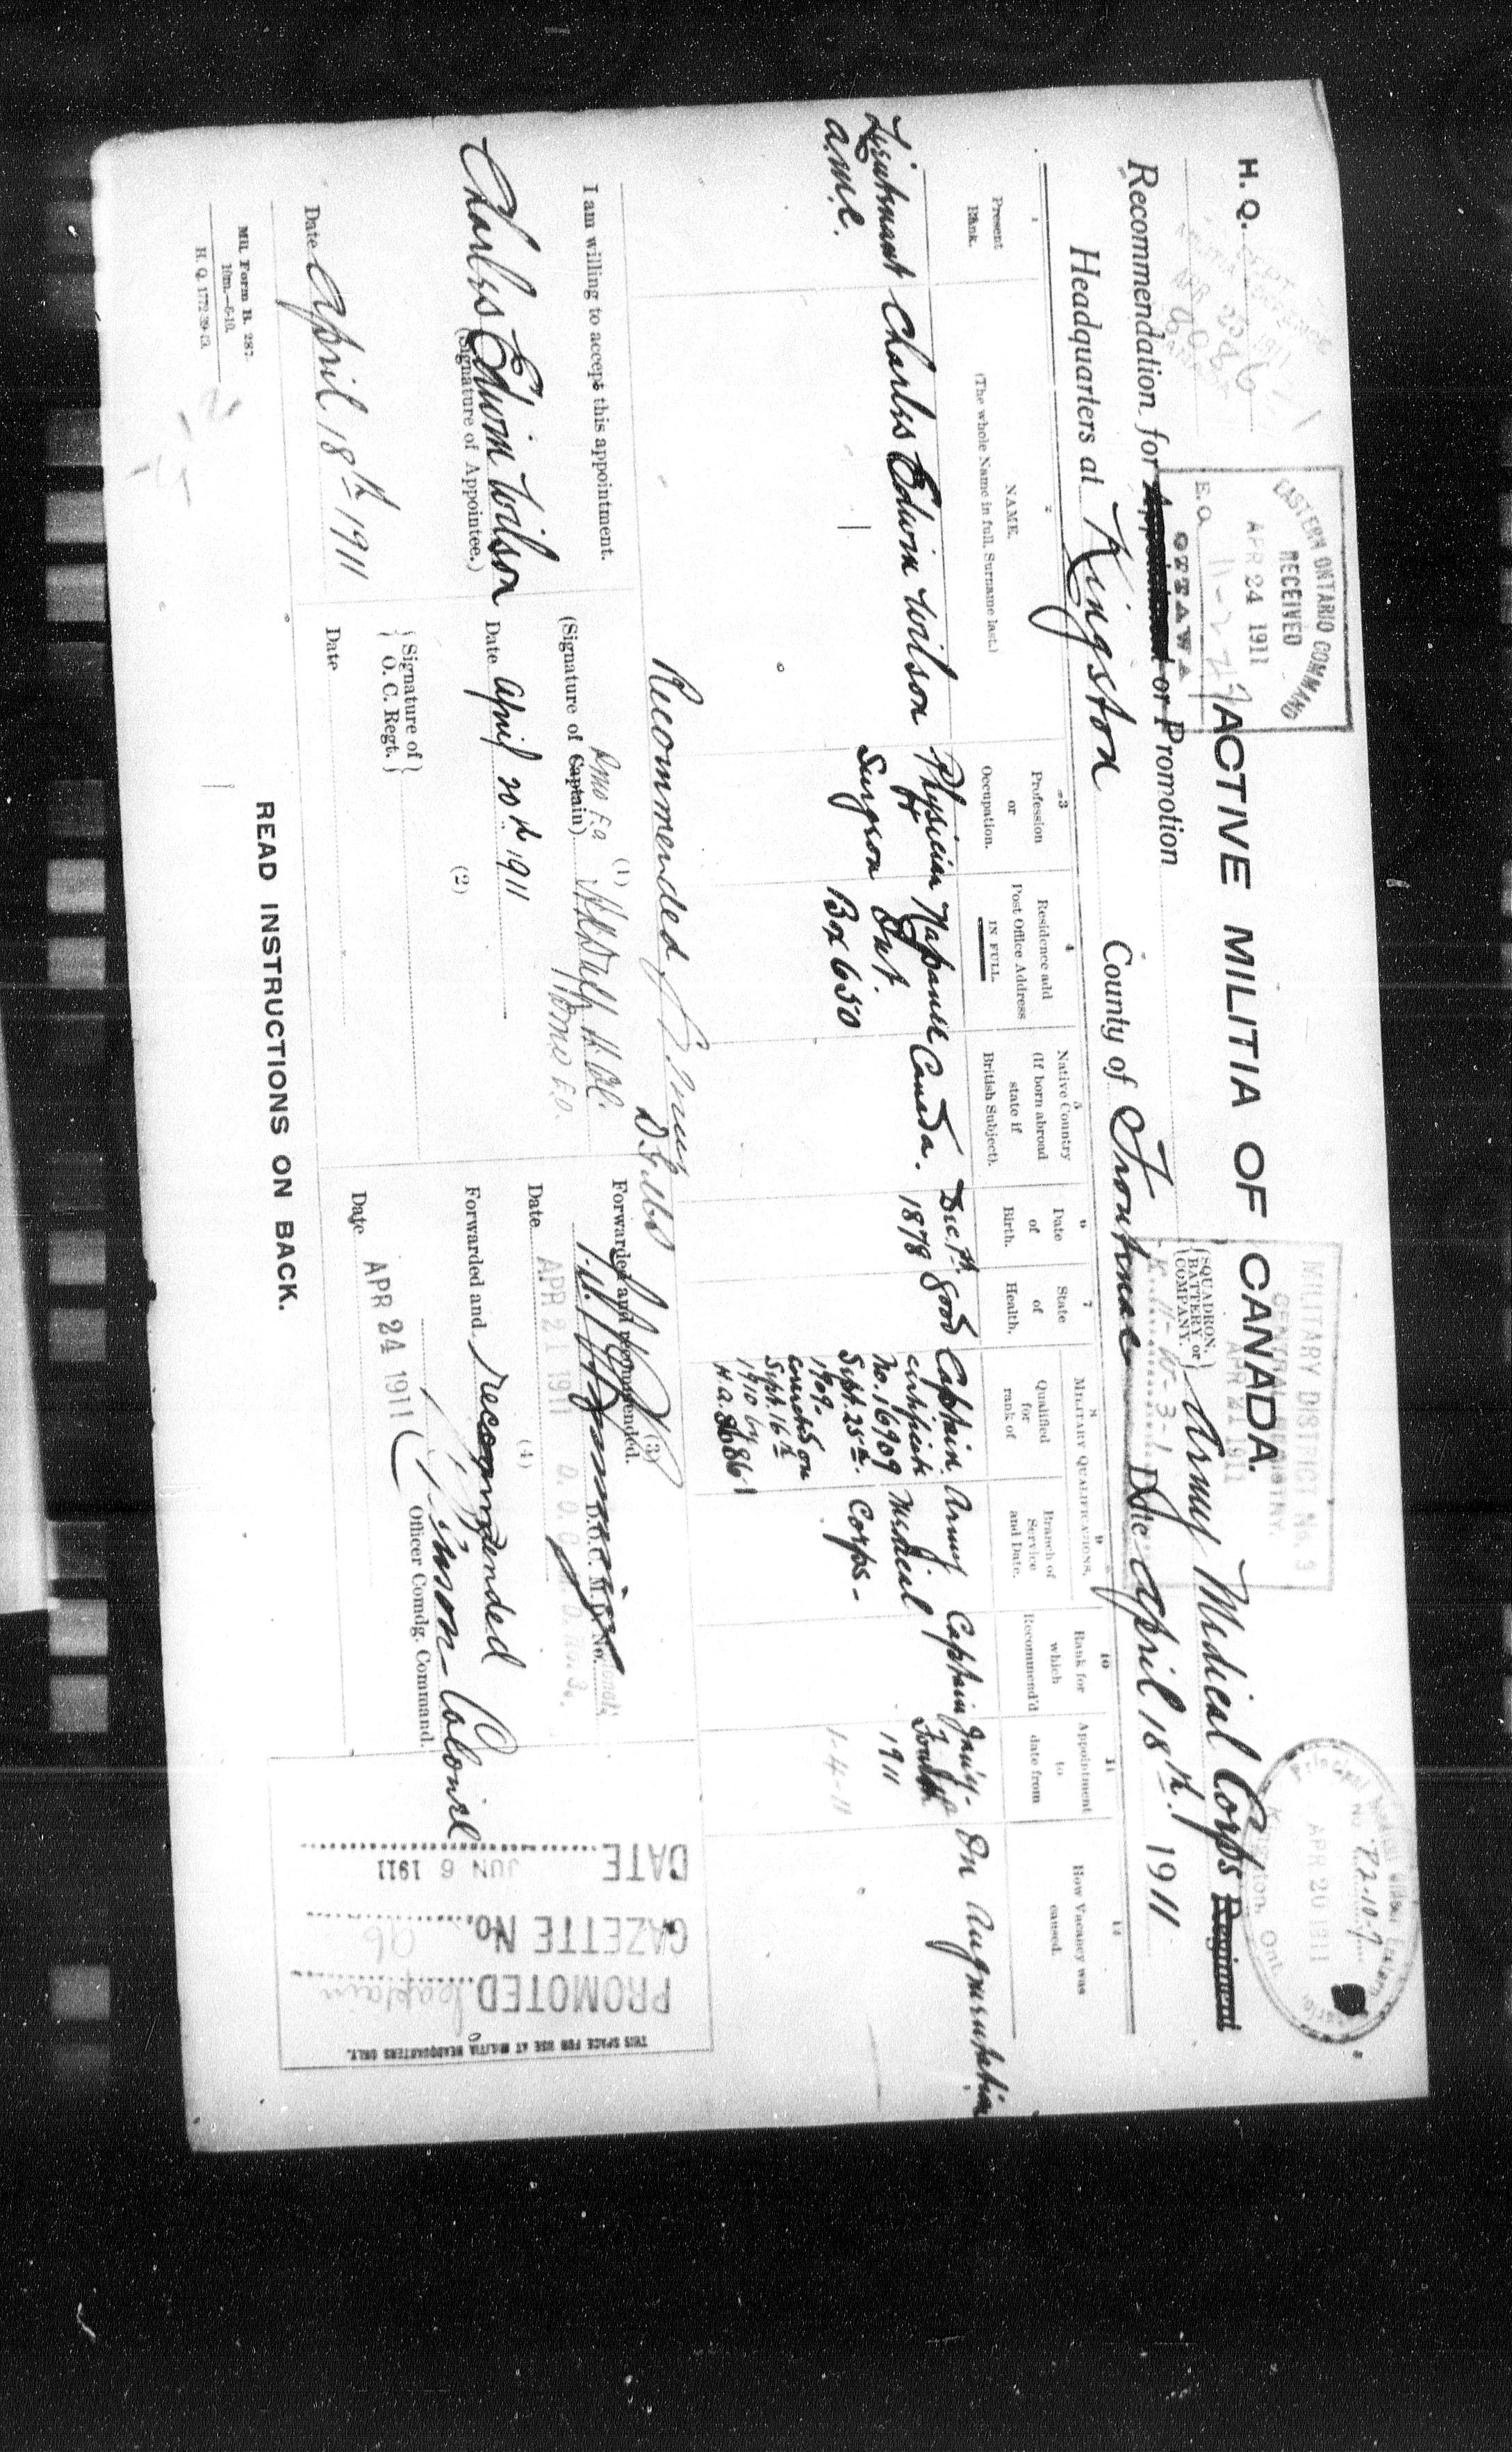 H. Q.
EASTERN ONTARIO COMMAND
RECEIVED
APR 24 1911
E.a 11-2-27
OTTAWA
MILITARY DISTRICT No. 3
APR 21 1911
K. 11-W-3-1
No. P.2-10-7
APR 20 1911
Kingston, Ont.
ACTIVE MILITIA OF CANADA.
Recommendation for Appointment or Promotion
SQUADRON, BATTERY or COMPANY.
Army Medical Corps Regiment
Headquarters at Kingston County of Frontenac Date April 18th 1911
1 Present Rank.
2 NAME. (The whole Name in full, Surname last.)
3 Profession or Occupation.
4 Residence add Post Office Address IN FULL.
5 Native Country (If born abroad state if British Subject).
6 Date of Birth.
7 State of Health,
MILITARY QUALIFICATIONS.
8 Qualified for rank of
9 Branch of Service and Date.
10 Rank for which Recommend'd
11 Appointment to date from
12 How Vacancy was caused.
Lieutenant A.M.C.
Charles Edwin Wilson
Physician & Surgeon
Napanee Ont. Box 650
Canada.
Dec. 7th 1878
Good
Captain. certificate No. 16909 Sept. 25th. 1909.
Sept. 16th 1910 by
Army Medical Corps -
Captain
1911
1-4-11
On Augmentation
Recommended
I am willing to accept this appointment.
Charles Edwin Wilson
(Signature of Appointee.)
Date April 18th 1911
(1)
(Signature of Captain)
Date April 20th 1911
(2)
Signature of O. C. Regt.
Date
(3)
Forwarded and recommended.
D.O.C. M.D. No.
Date APR 21 1911
(4)
Forwarded and recommended
Colonel
Officer Comdg. Command.
Date APR 24 1911
THIS SPACE FOR USE AT MILITIA HEADQUARTERS ONLY.
PROMOTED Captain
GAZETTE No. 96
DATE JUN 6 1911
Mil. Form B. 287.
10m.—6-10.
H. Q. 1772-39-43.
READ INSTRUCTIONS ON BACK.